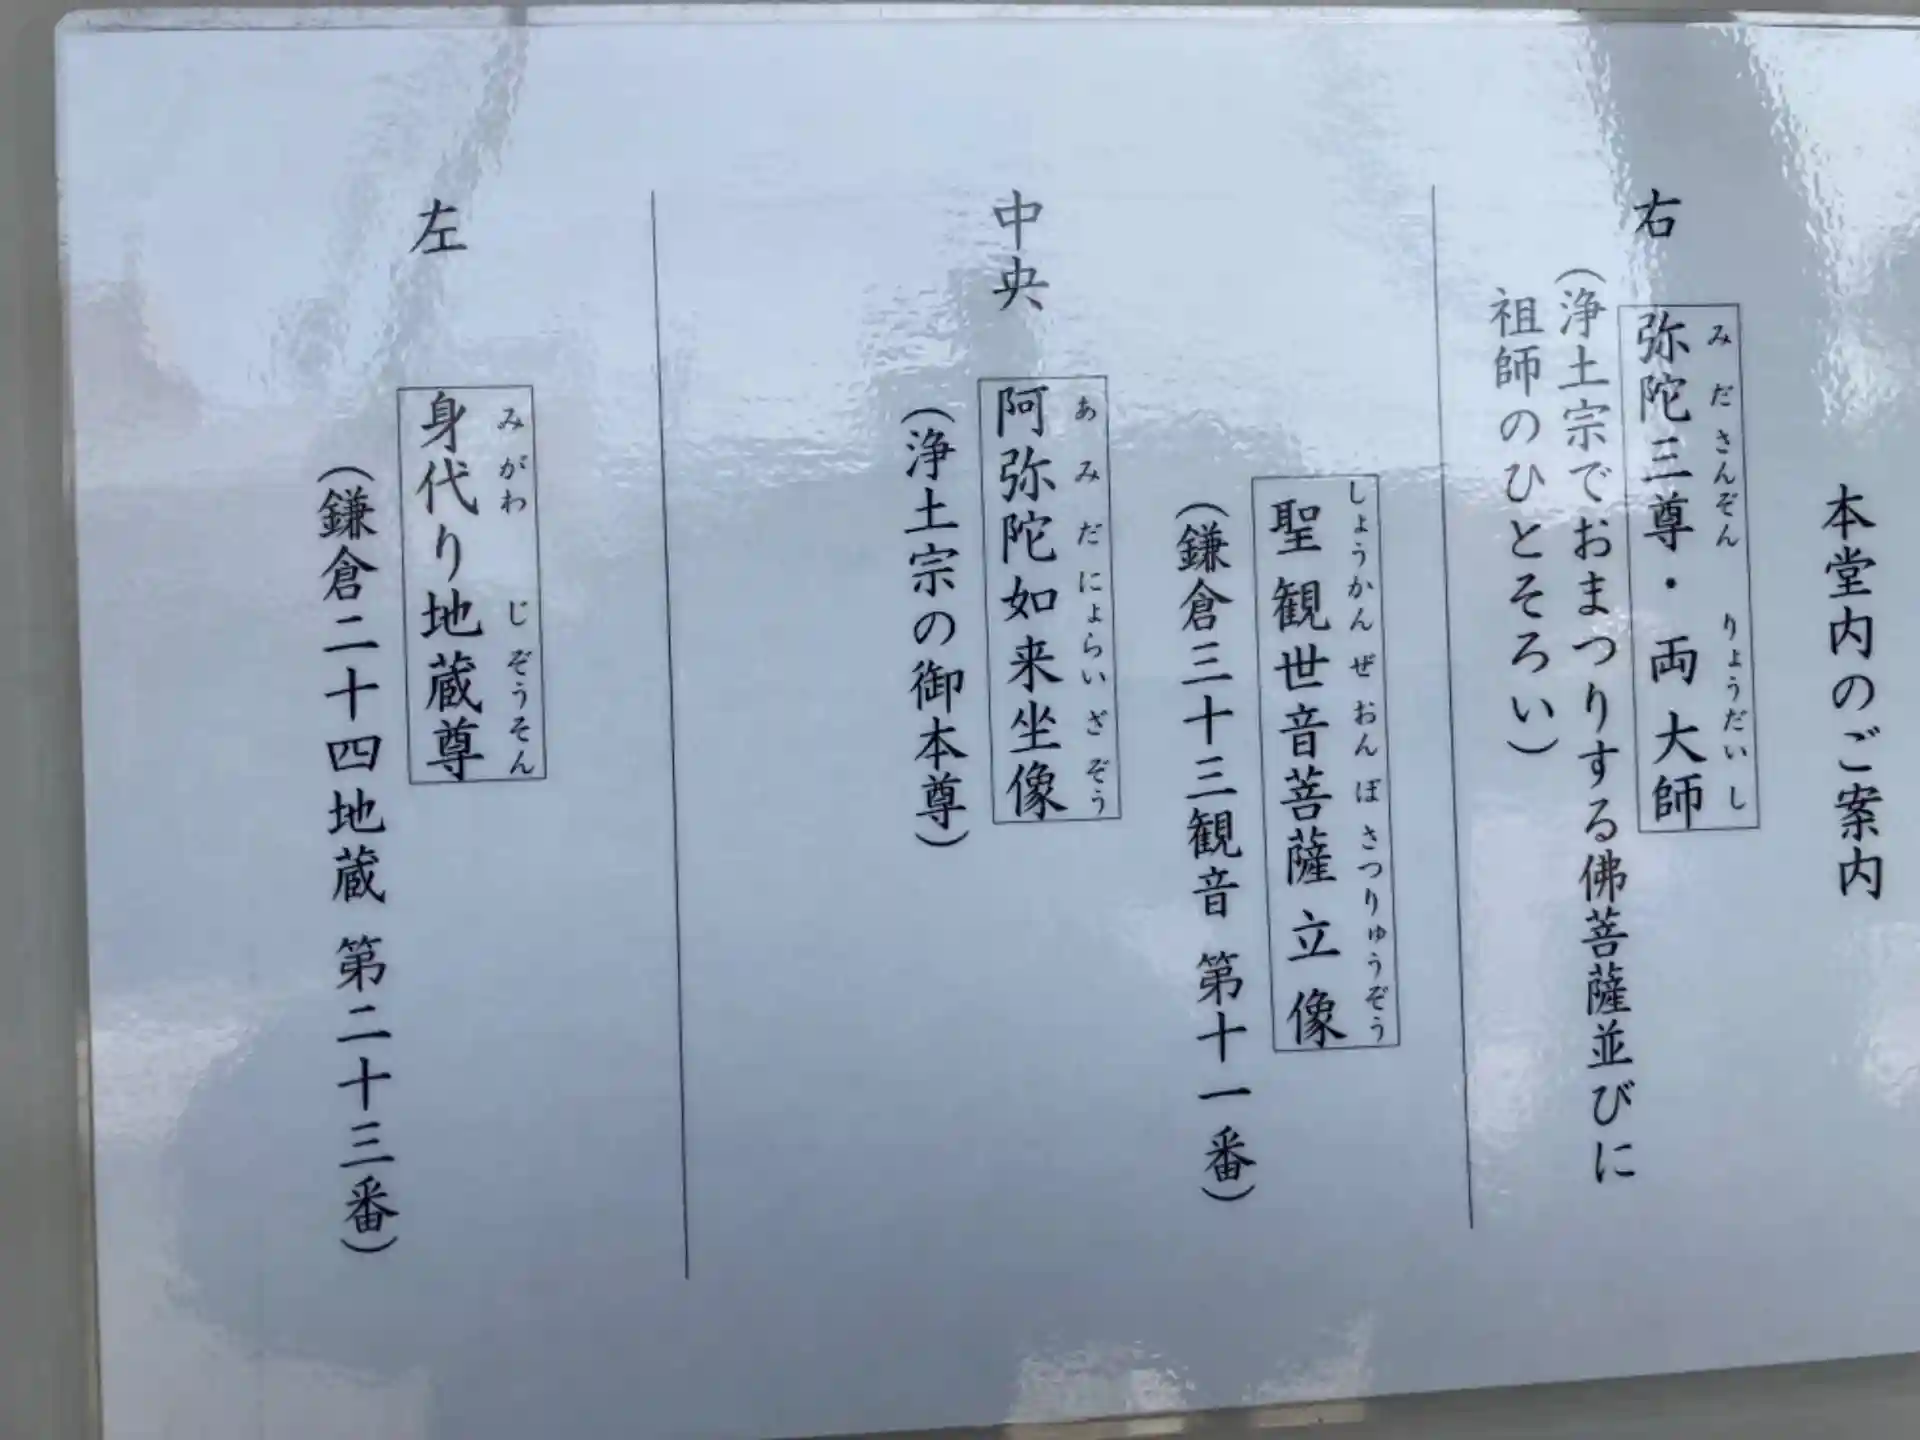 本堂内のご案内
右
みださんぞん りょうだいし
弥陀三尊・両大師
(浄土宗でおまつりする佛菩薩並びに
祖師のひとそろい)
しょうかんぜおんぼさつりゅうぞう
聖観世音菩薩立像
(鎌倉三十三観音 第十一番)
中央
あみだにょらいざぞう
阿弥陀如来坐像
(浄土宗の御本尊)
左
みがわ じぞうそん
身代り地蔵尊
(鎌倉二十四地蔵 第二十三番)